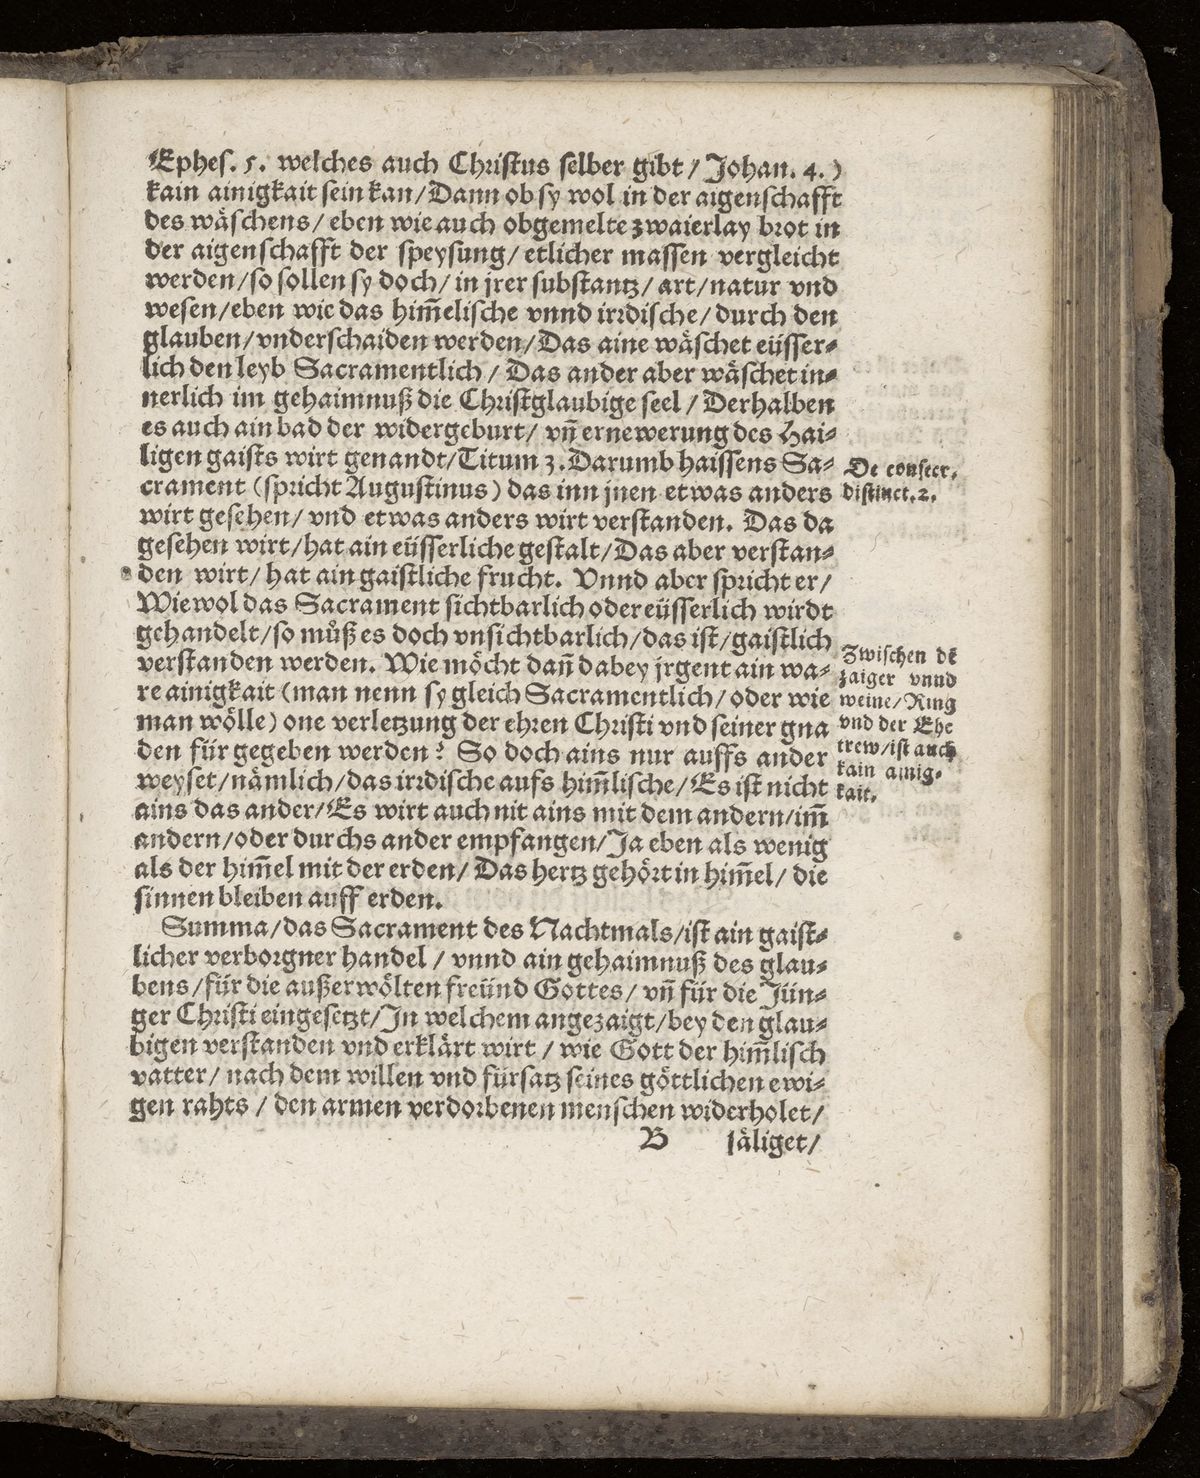 Ephes. 5. welches auch Christus selber gibt / Johan. 4.)
kain ainigkait sein kan / Dann ob sy wol in der aigenschafft
des wäschens / eben wie auch obgemelte zwaierlay brot in
der aigenschafft der speysung / etlicher massen vergleicht
werden / so sollen sy doch / in jrer substantz / art / natur vnd
wesen / eben wie das him̃elische vnnd irrdische / durch den
glauben / vnderschaiden werden / Das aine wäschet eüsser⸗
lich den leyb Sacramentlich / Das ander aber wäschet in⸗
nerlich im gehaimnuß die Christglaubige seel / Derhalben
es auch ain bad der widergeburt / vñ ernewerung des Hai⸗
ligen gaists wirt genandt / Titum 3. Darumb haissens Sa⸗
crament (spricht Augustinus) das inn jnen etwas anders
wirt gesehen / vnd etwas anders wirt verstanden. Das da
gesehen wirt / hat ain eüsserliche gestalt / Das aber verstan⸗
den wirt / hat ain gaistliche frucht. Vnnd aber spricht er /
Wiewol das Sacrament sichtbarlich oder eüsserlich wirdt
gehandelt / so můß es doch vnsichtbarlich / das ist / gaistlich
verstanden werden. Wie möcht dañ dabey jrgent ain wa⸗
re ainigkait (man nenn sy gleich Sacramentlich / oder wie
man wölle) one verletzung der ehren Christi vnd seiner gna
den für gegeben werden? So doch ains nur auffs ander
weyset / nämlich / das irrdische aufs him̃lische / Es ist nicht
ains das ander / Es wirt auch nit ains mit dem andern / im̃
andern / oder durchs ander empfangen / Ja eben als wenig
als der him̃el mit der erden / Das hertz gehört in him̃el / die
sinnen bleiben auff erden.
Summa / das Sacrament des Nachtmals / ist ain gaist⸗
licher verborgner handel / vnnd ain gehaimnuß des glau⸗
bens / für die außerwölten freünd Gottes / vñ für die Jün⸗
ger Christi eingesetzt / In welchem angezaigt / bey den glau⸗
bigen verstanden vnd erklärt wirt / wie Gott der him̃lisch
vatter / nach dem willen vnd fürsatz seines göttlichen ewi⸗
gen rahts / den armen verdorbenen menschen widerholet /
B säliget /
De consecr.
distinct. 2.
Zwischen dẽ
zaiger vnnd
weine / Ring
vnd der Ehe
trew / ist auch
kain ainig⸗
kait.